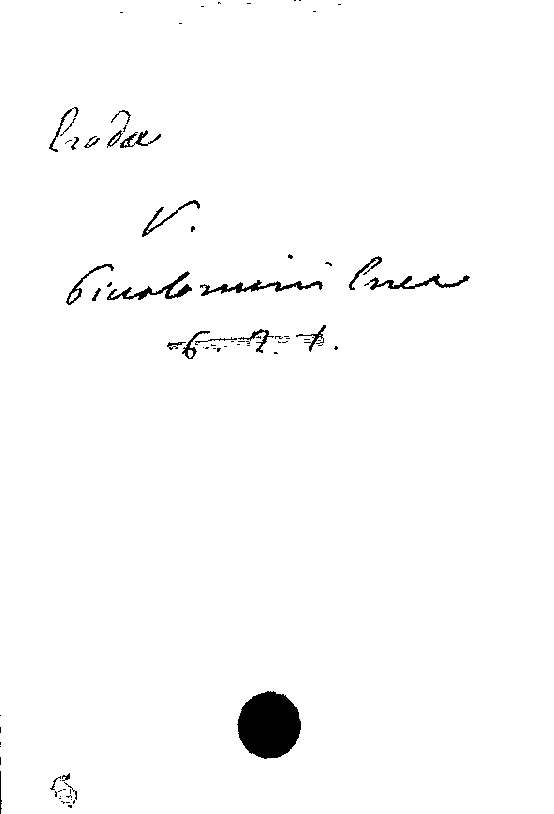 Erodoe
V.
Piccolomini Enea
6. 2. 1.